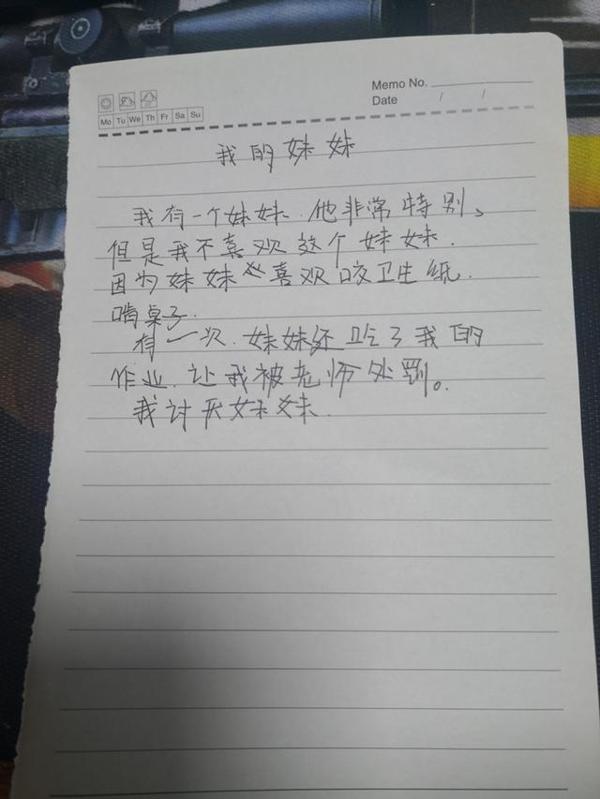 Memo No.
Date / /
Mo Tu We Th Fr Sa Su
我的妹妹
我有一个妹妹.他非常特别、
但是我不喜欢这个妹妹.
因为妹妹喜欢咬卫生纸.
啃桌子.
有一次.妹妹还吃了我的
作业.让我被老师处罚。
我讨厌妹妹.